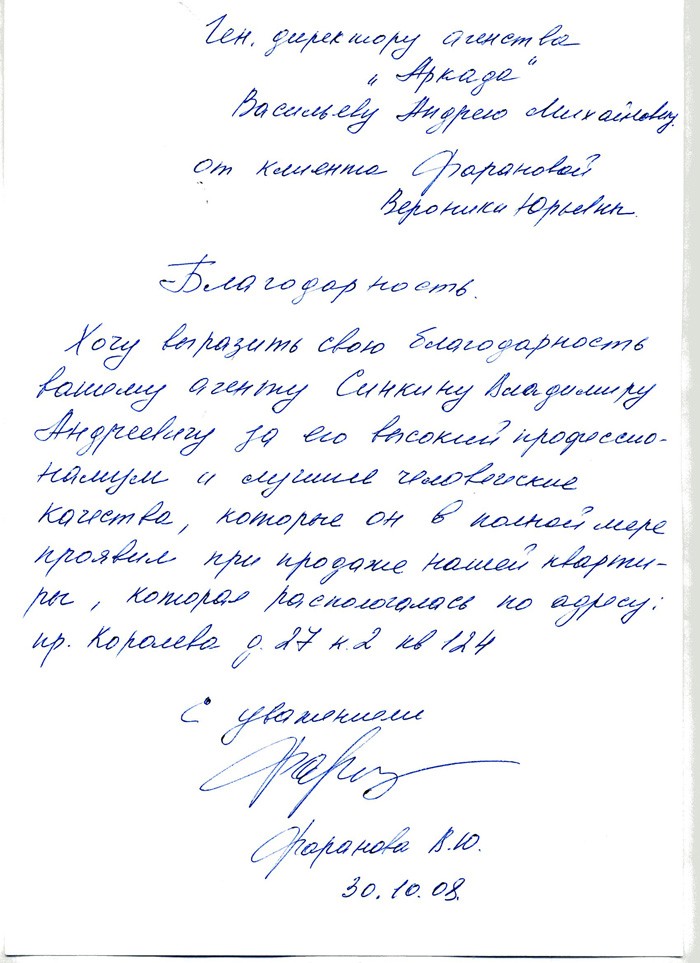 Ген. директору агенства
„Аркада“
Васильеву Андрею Михайловичу
от клиента Фарановой
Вероники Юрьевны.
Благодарность.
Хочу выразить свою благодарность
вашему агенту Синкину Владимиру
Андреевичу за его высокий профессио-
нализм и лучшие человеческие
качества, которые он в полной мере
проявил при продаже нашей кварти-
ры, которая распологалась по адресу:
пр. Королева д. 27 к. 2 кв 124
С уважением
Фаранова В.Ю.
30.10.08.